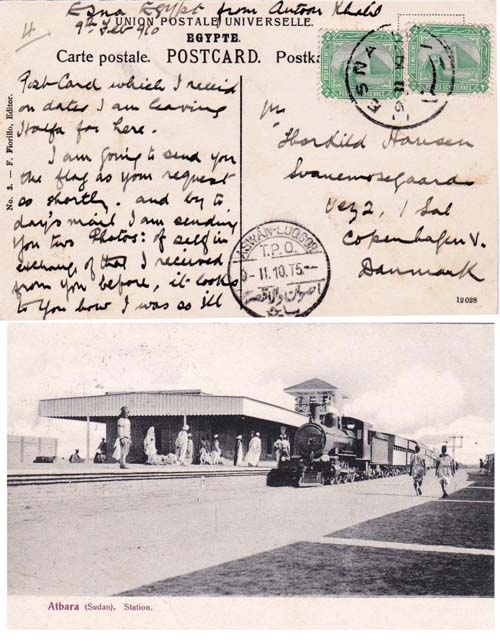 Esna Egypt from Antoon Khalil
9th Feb 910
4
UNION POSTALE UNIVERSELLE.
EGYPTE.
Carte postale. POSTCARD. Postka
Post-Card which I receid
on dates I am leaving
Halfa for here.
I am going to send you
the flag as your request
so shortly. and by to
day's mail I am sending
you two Photos: of self in
exchange of that I received
from you before, it looks
to you how I was so ill
No. 3. – F. Fiorillo, Editor.
ESNA
Thorkild Hansen
Svanemosegaards
Vej 2, 1 Sal
Copenhagen V.
Danmark
ASWAN-LUQSOR
T.P.O.
9-II.10.T5
اصوان والاقصر
12 028
Atbara (Sudan). Station.